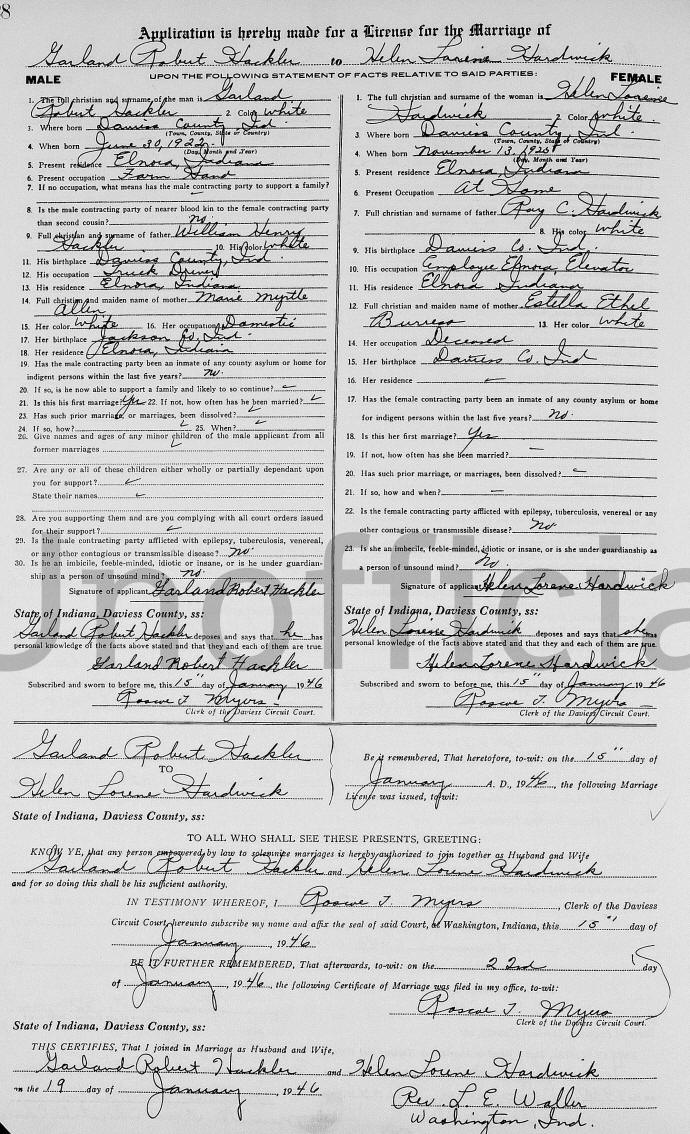 28
Application is hereby made for a License for the Marriage of
Garland Robert Hackler to Helen Lorene Hardwick
MALE UPON THE FOLLOWING STATEMENT OF FACTS RELATIVE TO SAID PARTIES: FEMALE
1. The full christian and surname of the man is Garland
Robert Hackler 2. Color White
3. Where born Daviess County Ind.
(Town, County, State or Country)
4. When born June 30, 1922
(Day, Month and Year)
5. Present residence Elnora, Indiana
6. Present occupation Farm Hand
7. If no occupation, what means has the male contracting party to support a family?
8. Is the male contracting party of nearer blood kin to the female contracting party
than second cousin? no.
9. Full christian and surname of father William Henry
Hackler 10. His color White
11. His birthplace Daviess County, Ind.
12. His occupation Truck Driver
13. His residence Elnora, Indiana
14. Full christian and maiden name of mother Marie Myrtle
Allen
15. Her color White 16. Her occupation Domestic
17. Her birthplace Jackson Co, Ind.
18. Her residence Elnora, Indiana
19. Has the male contracting party been an inmate of any county asylum or home for
indigent persons within the last five years? no.
20. If so, is he now able to support a family and likely to so continue?
21. Is this his first marriage? Yes 22. If not, how often has he been married?
23. Has such prior marriage, or marriages, been dissolved?
24. If so, how? 25. When?
26. Give names and ages of any minor children of the male applicant from all
former marriages
27. Are any or all of these children either wholly or partially dependent upon
you for support?
State their names
28. Are you supporting them and are you complying with all court orders issued
for their support?
29. Is the male contracting party afflicted with epilepsy, tuberculosis, venereal,
or any other contagious or transmissible disease? no.
30. Is he an imbecile, feeble-minded, idiotic or insane, or is he under guardian-
ship as a person of unsound mind? no
Signature of applicant Garland Robert Hackler
State of Indiana, Daviess County, ss:
Garland Robert Hackler deposes and says that he has
personal knowledge of the facts above stated and that they and each of them are true.
Garland Robert Hackler
Subscribed and sworn to before me, this 15" day of January 1946
Roscoe T. Myers
Clerk of the Daviess Circuit Court.
1. The full christian and surname of the woman is Helen Lorene
Hardwick 2. Color White.
3. Where born Daviess County Ind.
(Town, County, State or Country)
4. When born November 13, 1925
(Day, Month and Year)
5. Present residence Elnora, Indiana
6. Present Occupation At Home
7. Full christian and surname of father Ray C. Hardwick
8. His color White
9. His birthplace Daviess Co. Ind.
10. His occupation Employe Elnora, Elevator
11. His residence Elnora Indiana
12. Full christian and maiden name of mother Estella Ethel
Burress 13. Her color White
14. Her occupation Deceased
15. Her birthplace Daviess Co. Ind
16. Her residence
17. Has the female contracting party been an inmate of any county asylum or home
for indigent persons within the last five years? no.
18. Is this her first marriage? Yes
19. If not, how often has she been married?
20. Has such prior marriage, or marriages, been dissolved?
21. If so, how and when?
22. Is the female contracting party afflicted with epilepsy, tuberculosis, venereal or any
other contagious or transmissible disease? No
23. Is she an imbecile, feeble-minded, idiotic or insane, or is she under guardianship as
a person of unsound mind? No.
Signature of applicant Helen Lorene Hardwick
State of Indiana, Daviess County, ss:
Helen Lorene Hardwick deposes and says that she has
personal knowledge of the facts above stated and that they and each of them are true.
Helen Lorene Hardwick
Subscribed and sworn to before me, this 15" day of January 1946
Roscoe T. Myers
Clerk of the Daviess Circuit Court.
Garland Robert Hackler
TO
Helen Lorene Hardwick
Be it remembered, That heretofore, to-wit: on the 15" day of
January A. D., 1946, the following Marriage
License was issued, to-wit:
State of Indiana, Daviess County, ss:
TO ALL WHO SHALL SEE THESE PRESENTS, GREETING:
KNOW YE, that any person empowered by law to solemnize marriages is hereby authorized to join together as Husband and Wife
Garland Robert Hackler and Helen Lorene Hardwick
and for so doing this shall be his sufficient authority.
IN TESTIMONY WHEREOF, I Roscoe T. Myers, Clerk of the Daviess
Circuit Court, hereunto subscribe my name and affix the seal of said Court, at Washington, Indiana, this 15" day of
January, 1946
BE IT FURTHER REMEMBERED, That afterwards, to-wit: on the 22nd day
of January, 1946, the following Certificate of Marriage was filed in my office, to-wit:
Roscoe T. Myers
Clerk of the Daviess Circuit Court.
State of Indiana, Daviess County, ss:
THIS CERTIFIES, That I joined in Marriage as Husband and Wife,
Garland Robert Hackler and Helen Lorene Hardwick
on the 19 day of January, 1946
Rev. L. E. Waller
Washington, Ind.
unofficial